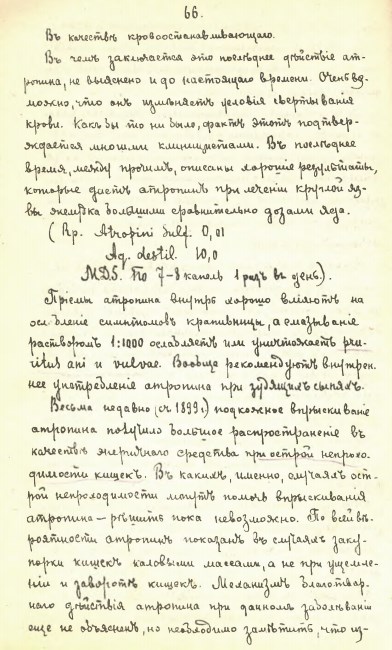 66.
Въ качествѣ кровоостанавливающаго.
Въ чемъ заключается это послѣднее дѣйствіе ат-
ропина, не выяснено и до настоящаго времени. Очень воз-
можно, что онъ измѣняетъ условія свертыванія
крови. Какъ бы то ни было, фактъ этотъ подтвер-
ждается многими клиницистами. Въ послѣднее
время, между прочимъ, описаны хорошіе результаты,
которые даетъ атропинъ при лечении круглой яз-
вы желудка большими сравнительно дозами яда.
(Rp. Atropini Sulf. 0,01
Aq. destil. 10,0
MDS. По 7-8 капель 1 разъ въ день.).
Пріемы атропина внутрь хорошо вліяютъ на
ослабленіе симптомовъ крапивницы, а смазываніе
растворомъ 1:1000 ослабляетъ или уничтожаетъ pru-
ritus ani и vulvae. Вообще рекомендуютъ внутрен-
нее употребленіе атропина при зудящихъ сыпяхъ.
Весьма недавно (съ 1899 г.) подкожное впрыскиваніе
атропина получило большое распространеніе въ
качествѣ энергичнаго средства при острой непрохо-
димости кишекъ. Въ какихъ, именно, случаяхъ ост-
рой непроходимости могутъ помочь впрыскивания
атропина — рѣшить пока невозможно. По всей вѣ-
роятности атропинъ показанъ въ случаяхъ заку-
порки кишекъ каловыми массами, а не при ущемле-
ніи и заворотѣ кишекъ. Механизмъ благотвор-
наго дѣйствія атропина при данномъ заболѣваніи
еще не объясненъ, но необходимо замѣтить, что из-